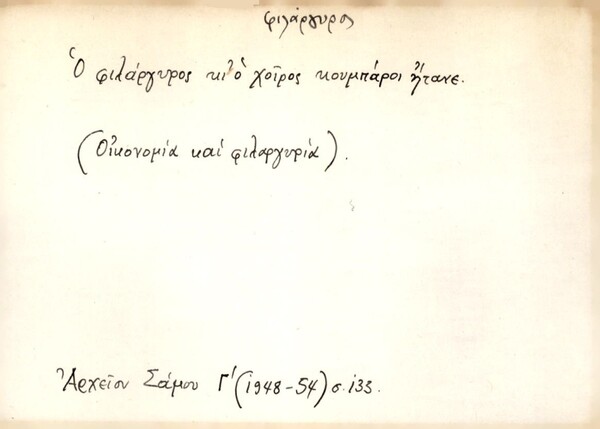 φιλάργυρος
Ὁ φιλάργυρος κι' ὁ χοῖρος κουμπάροι ἤτανε.
(Οἰκονομία καί φιλαργυρία).
Ἀρχεῖον Σάμου Γ' (1948-54) σ. 133.